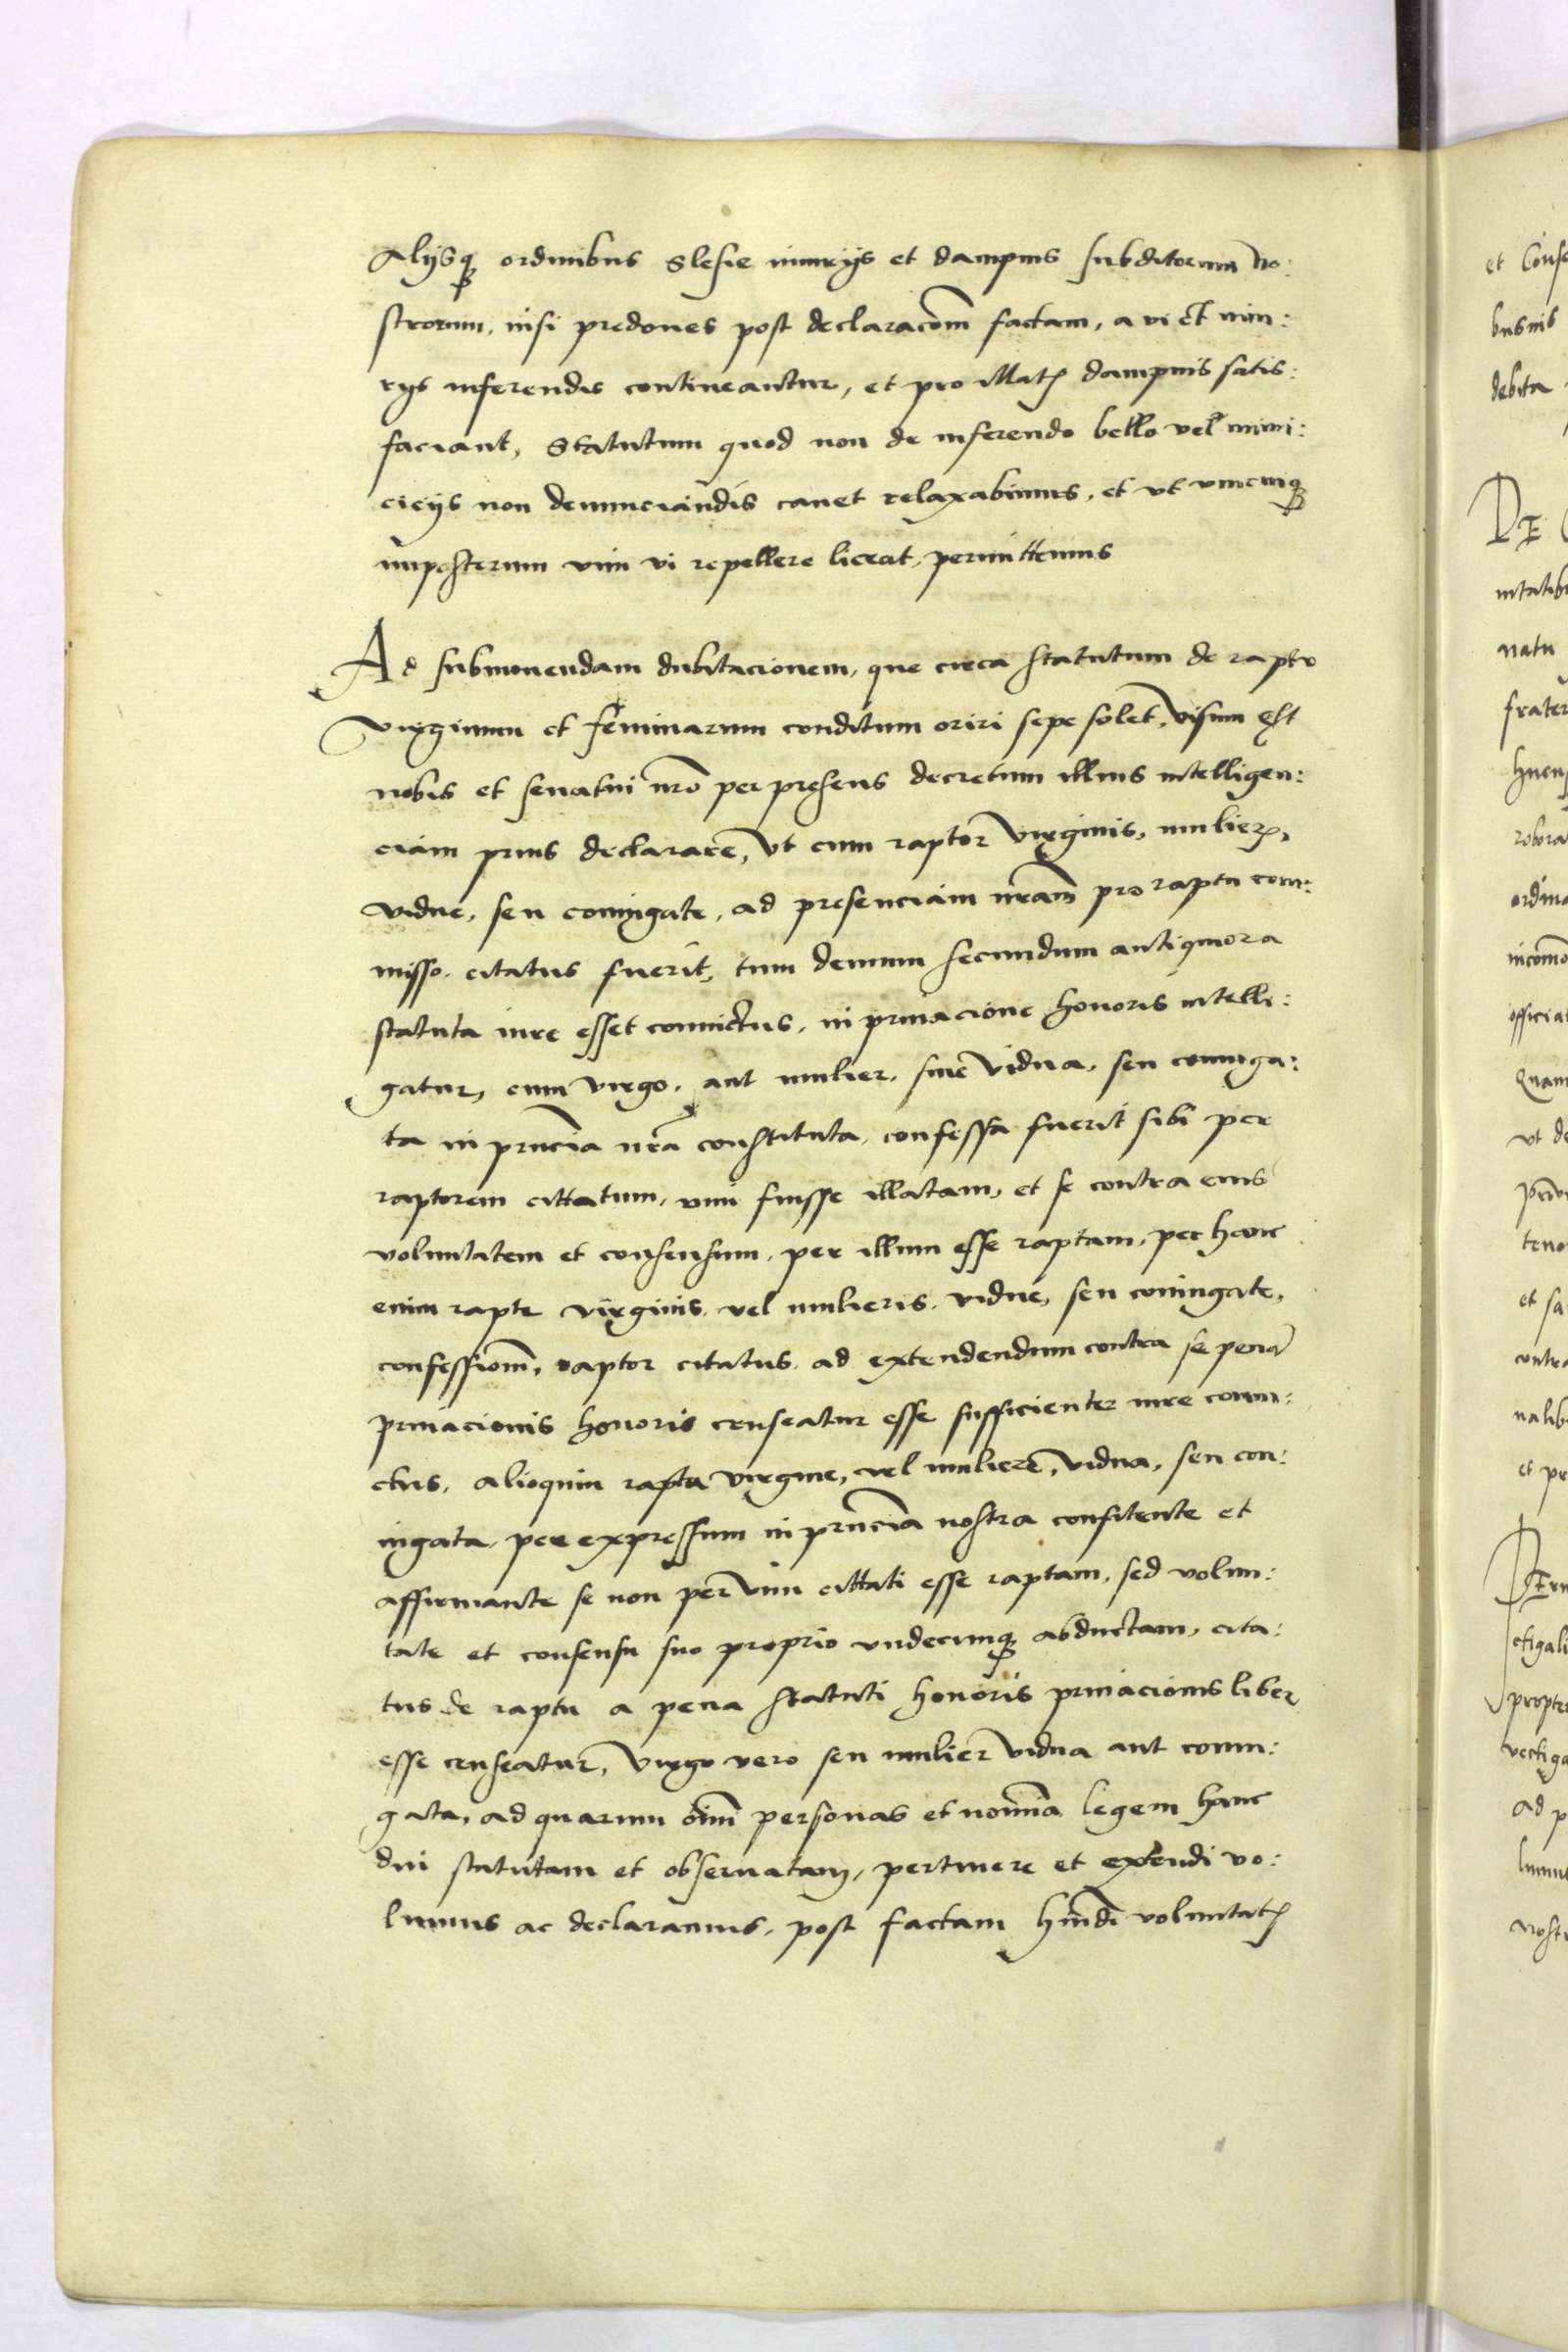 Alijsq ordinibus Slesie iniurijs et dampnis subditorum no:
strorum, nisi predones post declaracõem factam, a vi et iniu:
rijs inferendis contineantur, et pro illatis dampnis satis:
faciant, Statutum quod non de inferendo bello vel inimi:
cicijs non denunciandis cauet relaxabimus, et vt vnicuiq
imposterum vim vi repellere liceat, permittemus
Ad submouendam dubitacionem, que circa statutum de raptu
virginum et feminarum conditum oriri sepe solet, visum est
nobis et senatui nrõ per presens decretum illius intelligen:
ciam prius declarare, vt cum raptor virginis, mulieris,
vidue, seu coniugate, ad presenciam nrãm pro raptu com:
misso, citatus fuerit, tum demum secundum antiquiora
statuta iure esset conuictus, in priuacione honoris intelli:
gatur, cum virgo, aut mulier, siue vidua, seu coniuga:
ta in prñcia nrã constituta, confessa fuerit sibi per
raptorem cittatum, vim fuisse illatam, et se contra eius
voluntatem et consensum, per illum esse raptam, per hanc
enim rapte virginis, vel mulieris, vidue, seu coniugate,
confessionẽ, raptor citatus, ad extendendum contra se penã
priuacionis honoris censeatur esse sufficienter iure conui:
ctus, alioquin rapta virgine, vel muliere, vidua, seu con:
iugata, per expressum in prñcia nostra confitente et
affirmante se non per vim cittati esse raptam, sed volun:
tate et consensu suo proprio vndecunq abductam, cita:
tus de raptu a pena statuti honoris priuacionis liber
esse censeatur, virgo vero seu mulier vidua aut coniu:
gata, ad quarum oĩm personas et nomina legem hanc
diu statutam et obseruatam, pertinere et extendi vo:
lumus ac declaramus, post factam hmõdi voluntatis